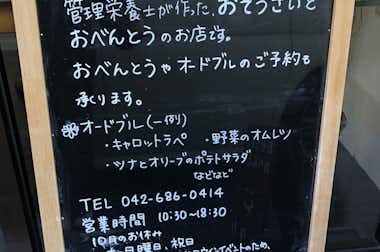 管理栄養士が作った、おそうざいと
おべんとうのお店です。
おべんとうやオードブルのご予約も
承ります。
❀オードブル(一例)
・キャロットラペ ・野菜のオムレツ
・ツナとオリーブのポテトサラダ
などなど
TEL 042-686-0414
営業時間 10:30~18:30
10月のお休み
日曜日、祝日
ロウィンイベントのため、